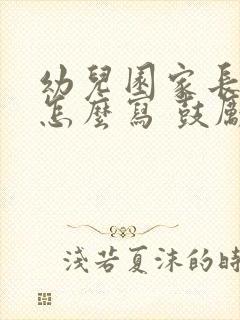 幼兒園家長
怎麼寫 鼓勵
淺若夏沫的時